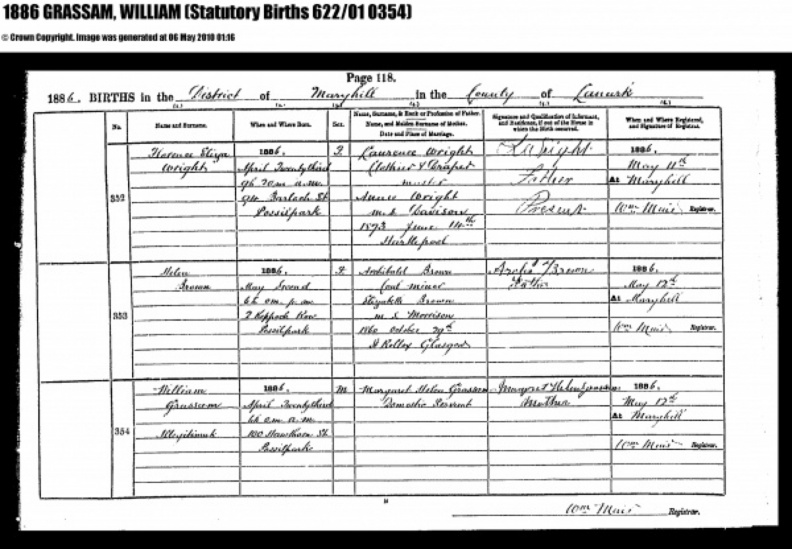 1886 GRASSAM, WILLIAM (Statutory Births 622/01 0354)
© Crown Copyright. Image was generated at 06 May 2010 01:16
Page 118.
1886. BIRTHS in the District of Maryhill in the County of Lanark
No.
Name and Surname.
When and Where Born.
Sex.
Name, Surname, & Rank or Profession of Father.
Name, and Maiden Surname of Mother.
Date and Place of Marriage.
Signature and Qualification of Informant,
and Residence, if out of the House in
which the Birth occurred.
When and Where Registered,
and Signature of Registrar.
352
Florence Eliza
Wright
1886.
April Twentythird
9h 20m a.m.
94 St
Possilpark
F.
Laurence Wright
Clothier & Draper
master
Annie Wright
m.s. Davison
1873 June 14th
Hartlepool
L Wright
Father
Present
1886.
May 11th
At Maryhill
Wm Muir Registrar.
353
Helen
Brown
1886.
May Second
6h 0m. p.m.
2 Keppoch Row
Possilpark
F.
Archibald Brown
Coal miner
Elizabeth Brown
m.s. Morrison
1860 October 29th
St Rollox Glasgow
Archd Brown
Father
1886.
May 12th
At Maryhill
Wm Muir Registrar.
354
William
Grassam
Illegitimate
1886.
April Twentythird
6h 0m a.m.
100 Hawthorn St.
Possilpark
M.
Margaret Helen Grassam
Domestic Servant
Margaret Helen Grassam
Mother
1886.
May 12th
At Maryhill
Wm Muir Registrar.
Wm Muir Registrar.